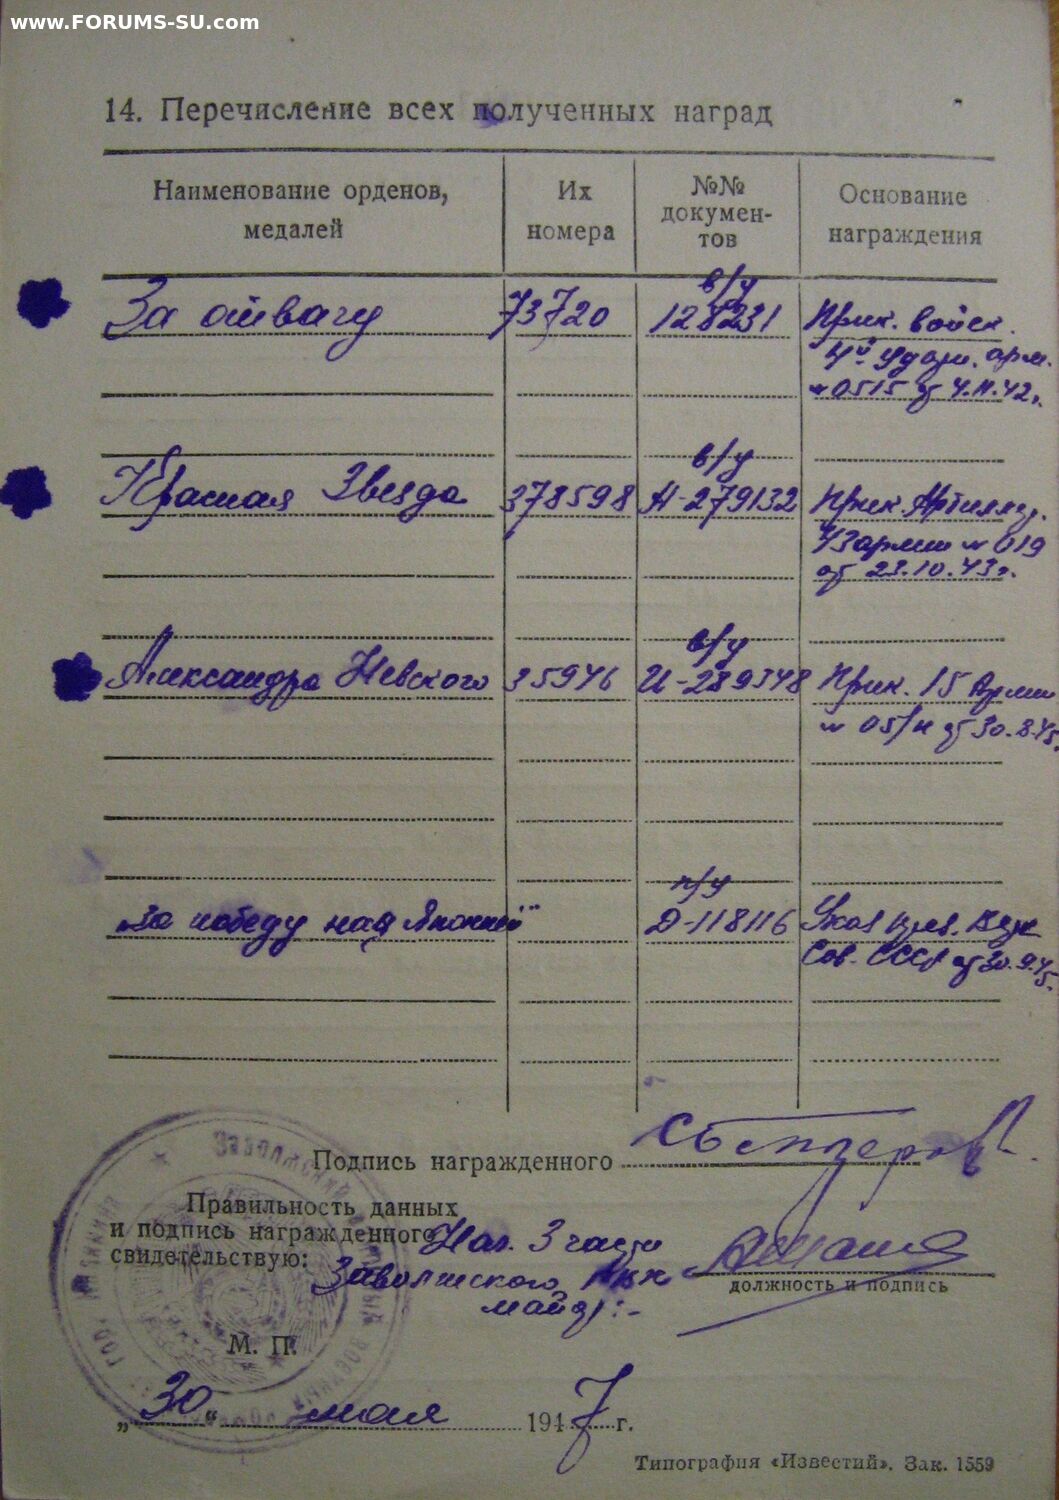 www.FORUMS-SU.com
14. Перечисление всех полученных наград
Наименование орденов, медалей
Их номера
№№ докумен-тов
Основание награждения
в/у
За отвагу 73720 128231 Прик. войск.
4й Удар. арм.
№ 0515 от 4.11.42г.
в/у
Красная Звезда 378598 А-279132 Прик. Артиллер.
43 армии № 019
от 23.10.43г.
в/у
Александра Невского 35946 И-289348 Прик. 15 Армии
№ 05/н от 30.8.45г.
п/у
"За победу над Японией" Д-118116 Указ През. Верх.
Сов. СССР от 30.9.45г.
Подпись награжденного
Правильность данных
и подпись награжденного
свидетельствую:
Нач. 3 части
Заволжского РВК
майор:-
должность и подпись
М. П.
„30“ мая 1947 г.
Типография «Известий». Зак. 1559